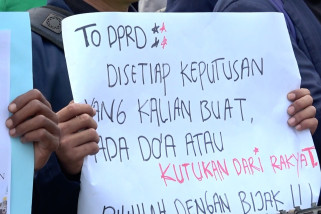 To DPRD :
DISETIAP KEPUTUSAN
YANG KALIAN BUAT,
ADA DO'A ATAU
KUTUKAN DARI RAKYAT.
PILIHLAH DENGAN BIJAK !!